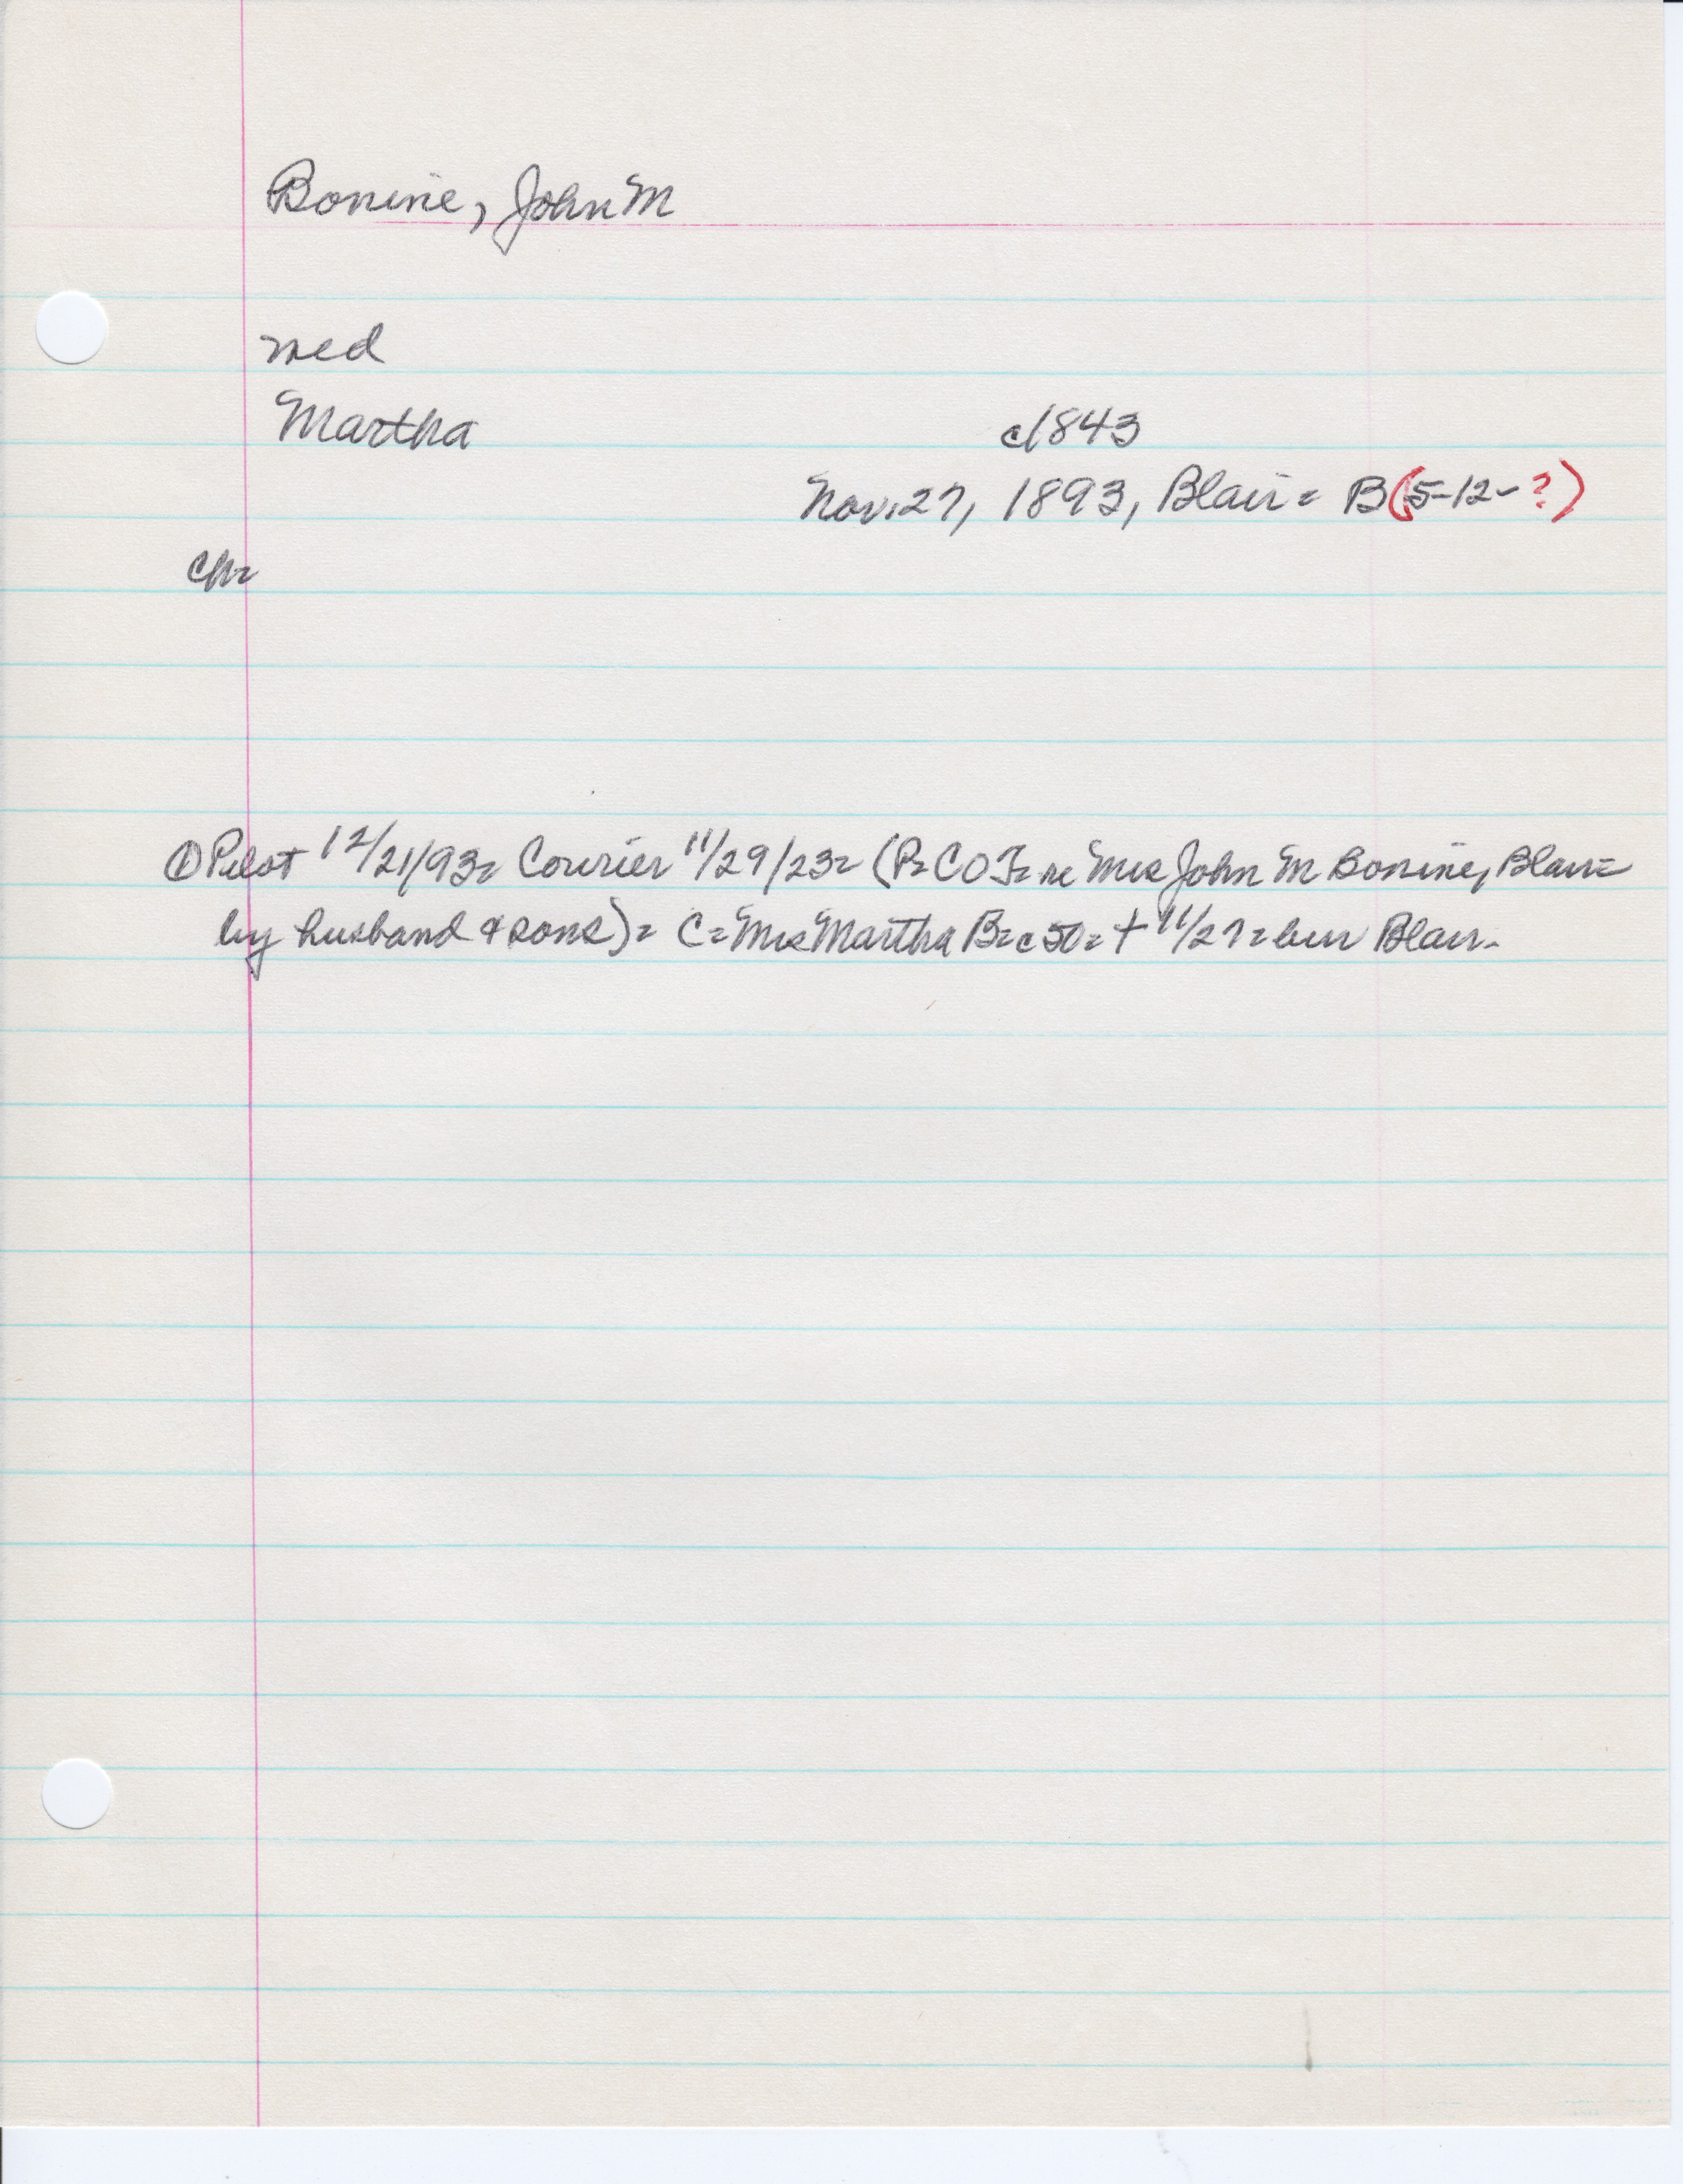 Bonine, John M
med
Martha
c1843
Nov. 27, 1893, Blair = B(5-12-?)
ch=
① Pilot 12/21/93= Courier 11/29/23= (P=COT= re Mrs John M Bonine, Blair=
by husband & sons)= C=Mrs Martha B=c50=+ 11/27=bur Blair-